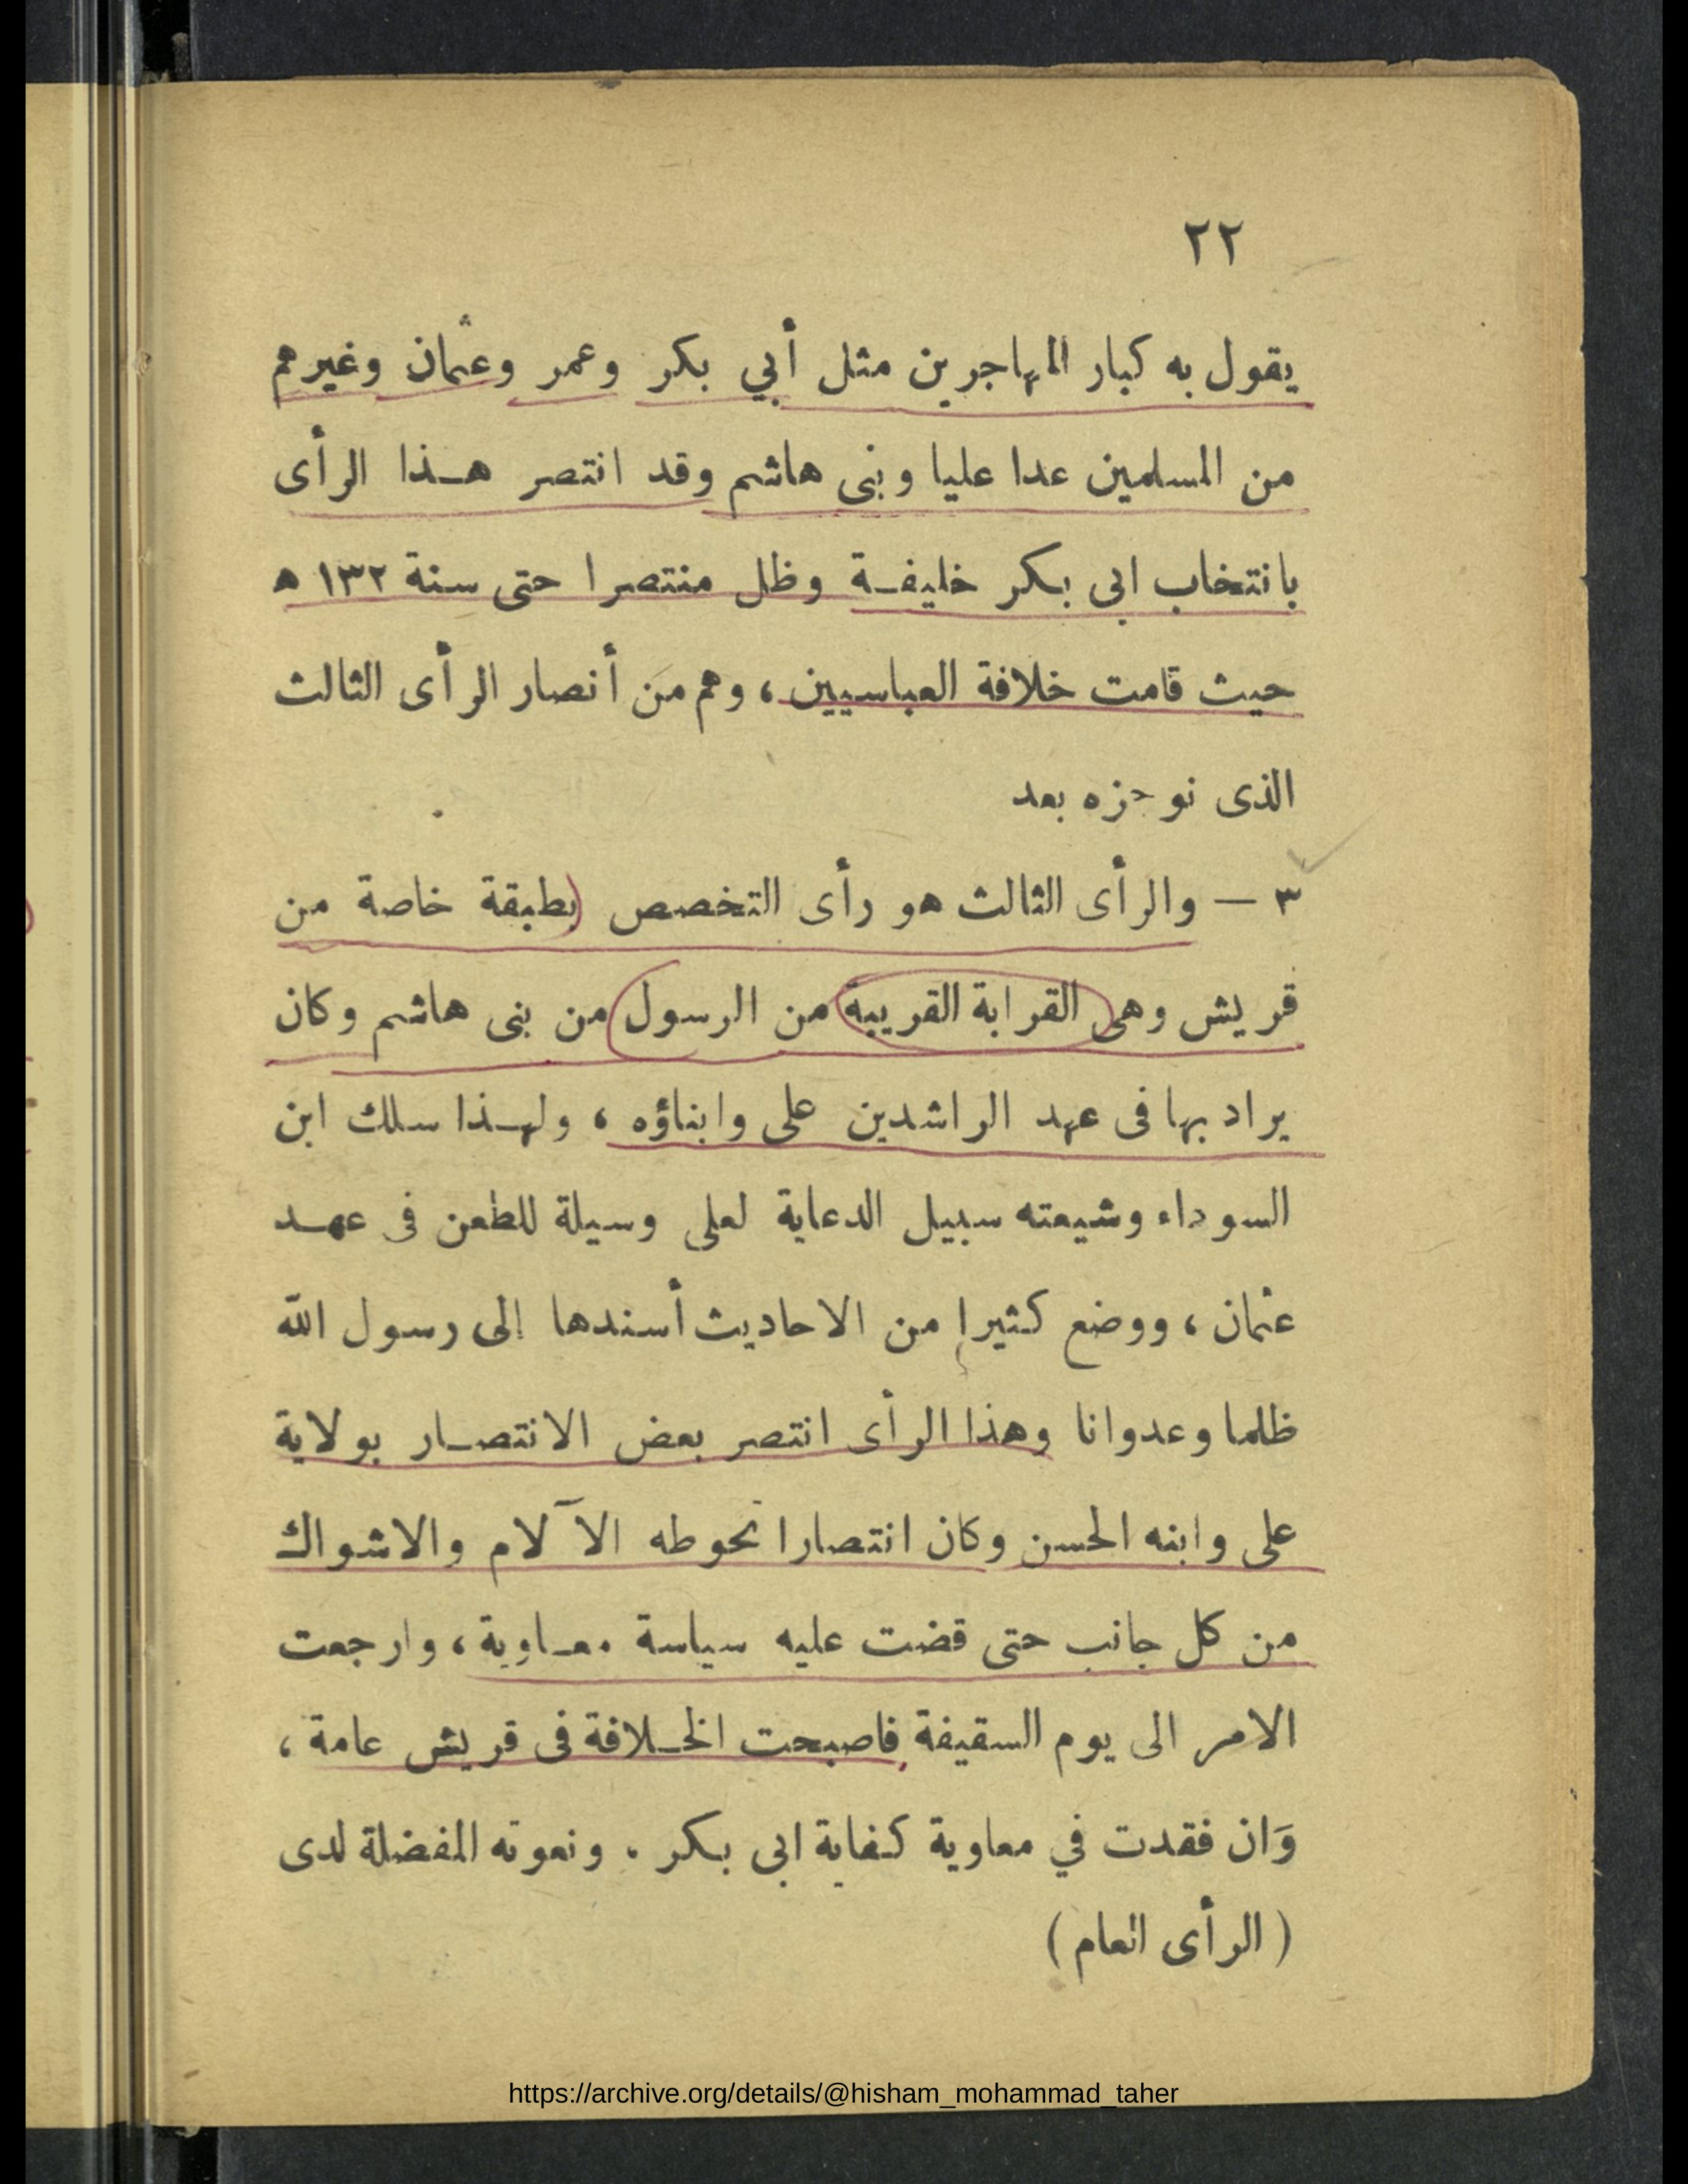 ٢٢
يقول به كبار المهاجرين مثل أبي بكر وعمر وعثمان وغيرهم
من المسلمين عدا عليا وبنى هاشم وقد انتصر هذا الرأى
بانتخاب ابى بكر خليفة وظل منتصرا حتى سنة ١٣٢ ه
حيث قامت خلافة العباسيين ، وهم من أنصار الرأى الثالث
الذى نوجزه بعد
٣ — والرأى الثالث هو رأى التخصص بطبقة خاصة من
قريش وهى القرابة القريبة من الرسول من بنى هاشم وكان
يراد بها فى عهد الراشدين على وابناؤه ، ولهذا سلك ابن
السوداء وشيعته سبيل الدعاية لعلى وسيلة للطعن فى عهد
عثمان ، ووضع كثيرا من الاحاديث أسندها إلى رسول الله
ظلما وعدوانا وهذا الرأى انتصر بعض الانتصار بولاية
على وابنه الحسن وكان انتصارا تحوطه الآلام والاشواك
من كل جانب حتى قضت عليه سياسة معاوية ، وارجعت
الامر الى يوم السقيفة فاصبحت الخلافة فى قريش عامة ،
وَان فقدت في معاوية كفاية ابى بكر . ونعوته المفضلة لدى
( الرأى العام )
https://archive.org/details/@hisham_mohammad_taher